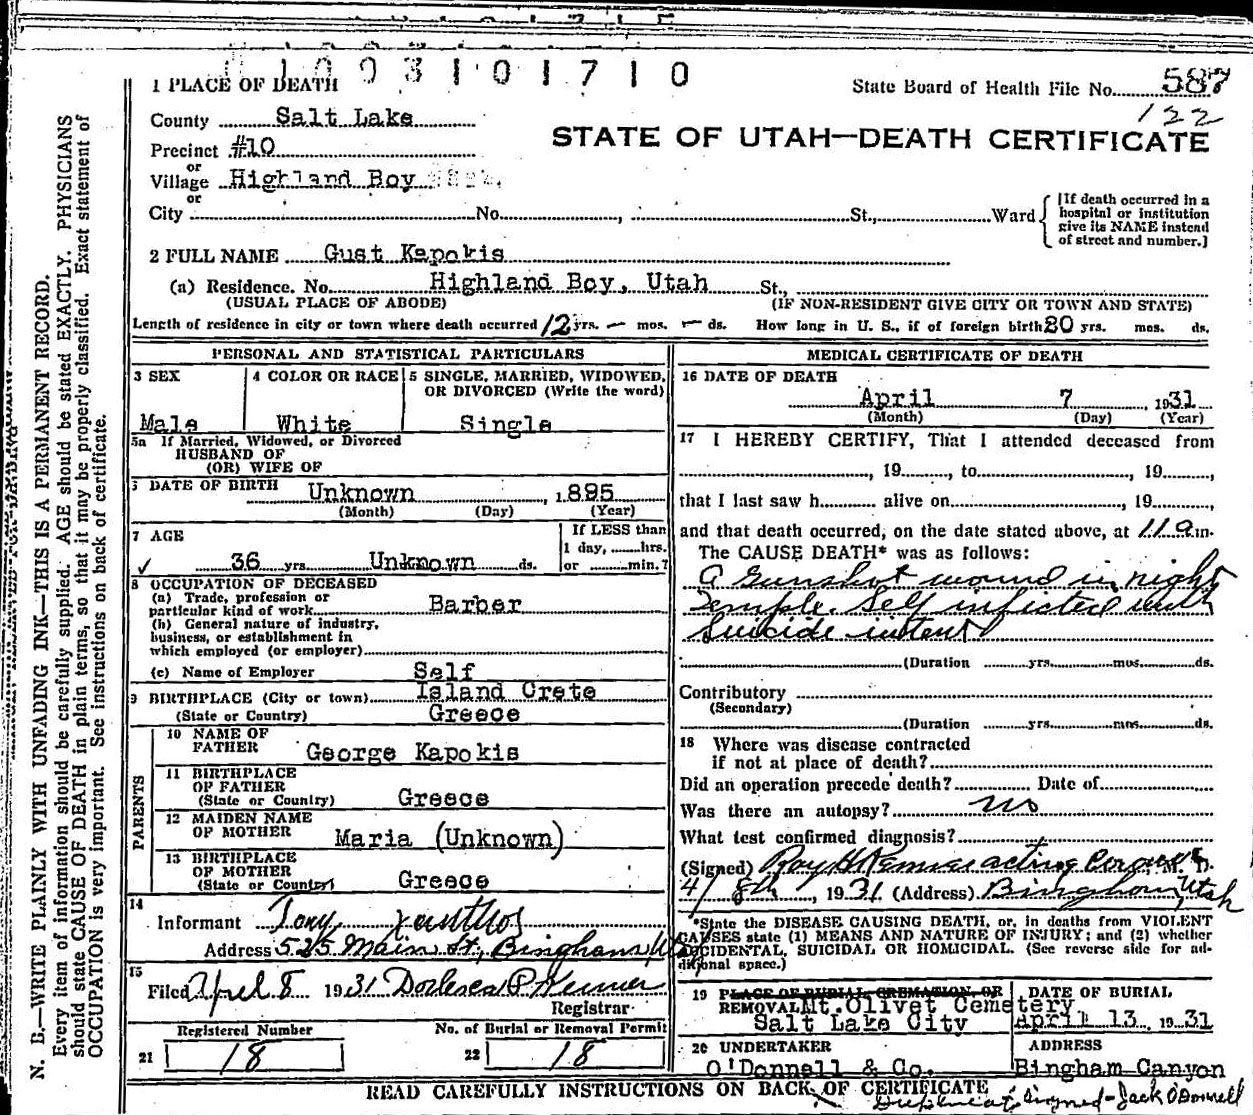 1 0 0 3 1 0 1 7 1 0
1 PLACE OF DEATH
State Board of Health File No. 587
122
County Salt Lake
STATE OF UTAH—DEATH CERTIFICATE
Precinct #10
or
Village Highland Boy
or
City No. , St., Ward
[If death occurred in a
hospital or institution
give its NAME instead
of street and number.]
2 FULL NAME Gust Kapokis
(a) Residence. No. Highland Boy, Utah St.,
(USUAL PLACE OF ABODE) (IF NON-RESIDENT GIVE CITY OR TOWN AND STATE)
Length of residence in city or town where death occurred 12 yrs. — mos. — ds. How long in U. S., if of foreign birth 20 yrs. mos. ds.
PERSONAL AND STATISTICAL PARTICULARS
3 SEX
Male
4 COLOR OR RACE
White
5 SINGLE, MARRIED, WIDOWED,
OR DIVORCED (Write the word)
Single
5a If Married, Widowed, or Divorced
HUSBAND OF
(OR) WIFE OF
DATE OF BIRTH Unknown , 1895
(Month) (Day) (Year)
7 AGE
36 yrs. Unknown ds.
If LESS than
1 day, hrs.
or min.?
8 OCCUPATION OF DECEASED
(a) Trade, profession or
particular kind of work Barber
(b) General nature of industry,
business, or establishment in
which employed (or employer)
(c) Name of Employer Self
9 BIRTHPLACE (City or town) Island Crete
(State or Country) Greece
PARENTS
10 NAME OF
FATHER George Kapokis
11 BIRTHPLACE
OF FATHER
(State or Country) Greece
12 MAIDEN NAME
OF MOTHER Maria (Unknown)
13 BIRTHPLACE
OF MOTHER
(State or Country) Greece
14
Informant Tony Xanthos
Address 525 Main St., Bingham, Utah
15
Filed April 8 1931
Registrar.
Registered Number
21 18
No. of Burial or Removal Permit
22 18
MEDICAL CERTIFICATE OF DEATH
16 DATE OF DEATH
April 7 , 1931
(Month) (Day) (Year)
17 I HEREBY CERTIFY, That I attended deceased from
, 19 , to , 19 ,
that I last saw h alive on , 19 ,
and that death occurred, on the date stated above, at 11 a m.
The CAUSE DEATH* was as follows:
A Gunshot wound in right
Temple. Self inflicted with
Suicide intent
(Duration yrs. mos. ds.
Contributory
(Secondary)
(Duration yrs. mos. ds.
18 Where was disease contracted
if not at place of death?
Did an operation precede death? Date of
Was there an autopsy? no
What test confirmed diagnosis?
(Signed) Roy H acting Coroner, M. D.
4/8th, 1931 (Address) Bingham, Utah
*State the DISEASE CAUSING DEATH, or, in deaths from VIOLENT
CAUSES state (1) MEANS AND NATURE OF INJURY; and (2) whether
ACCIDENTAL, SUICIDAL OR HOMICIDAL. (See reverse side for ad-
ditional space.)
19 PLACE OF BURIAL CREMATION OR
REMOVAL Mt. Olivet Cemetery
Salt Lake City
DATE OF BURIAL
April 13, 1931
20 UNDERTAKER
O'Donnell & Co.
ADDRESS
Bingham Canyon
READ CAREFULLY INSTRUCTIONS ON BACK OF CERTIFICATE
Duplicate signed - Jack O'Donnell
N. B.—WRITE PLAINLY WITH UNFADING INK—THIS IS A PERMANENT RECORD.
Every item of information should be carefully supplied. AGE should be stated EXACTLY. PHYSICIANS
should state CAUSE OF DEATH in plain terms, so that it may be properly classified. Exact statement of
OCCUPATION is very important. See instructions on back of certificate.